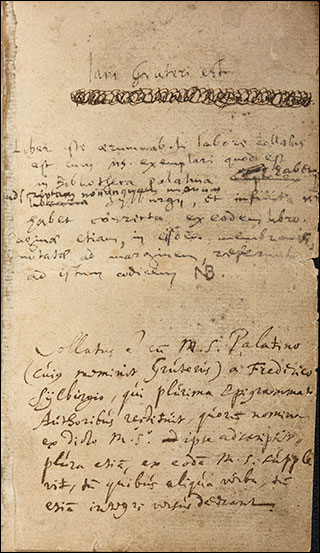 Jani Gruteri est
Liber iste ærumnabili labore collatus
est cum ms. exemplari quod est
in Bibliotheca Palatina
habet correcta ex eodem libro.
etiam, in membranis
notata ad marginem,
ad istum codicem NB
Collatus e cũ M.S. Palatino
(cuiꝯ meminit Gruterus) a Frederico
Sylburgio, qui plurima Epigrammata
Authoribus restituit, quorũ nomina
ex dicto M.S. ipse adscripsit,
plura etiã, ex eodẽ M.S. supple
vit, tũ quibus aliqua verba, tũ
etiã integri versus deerant